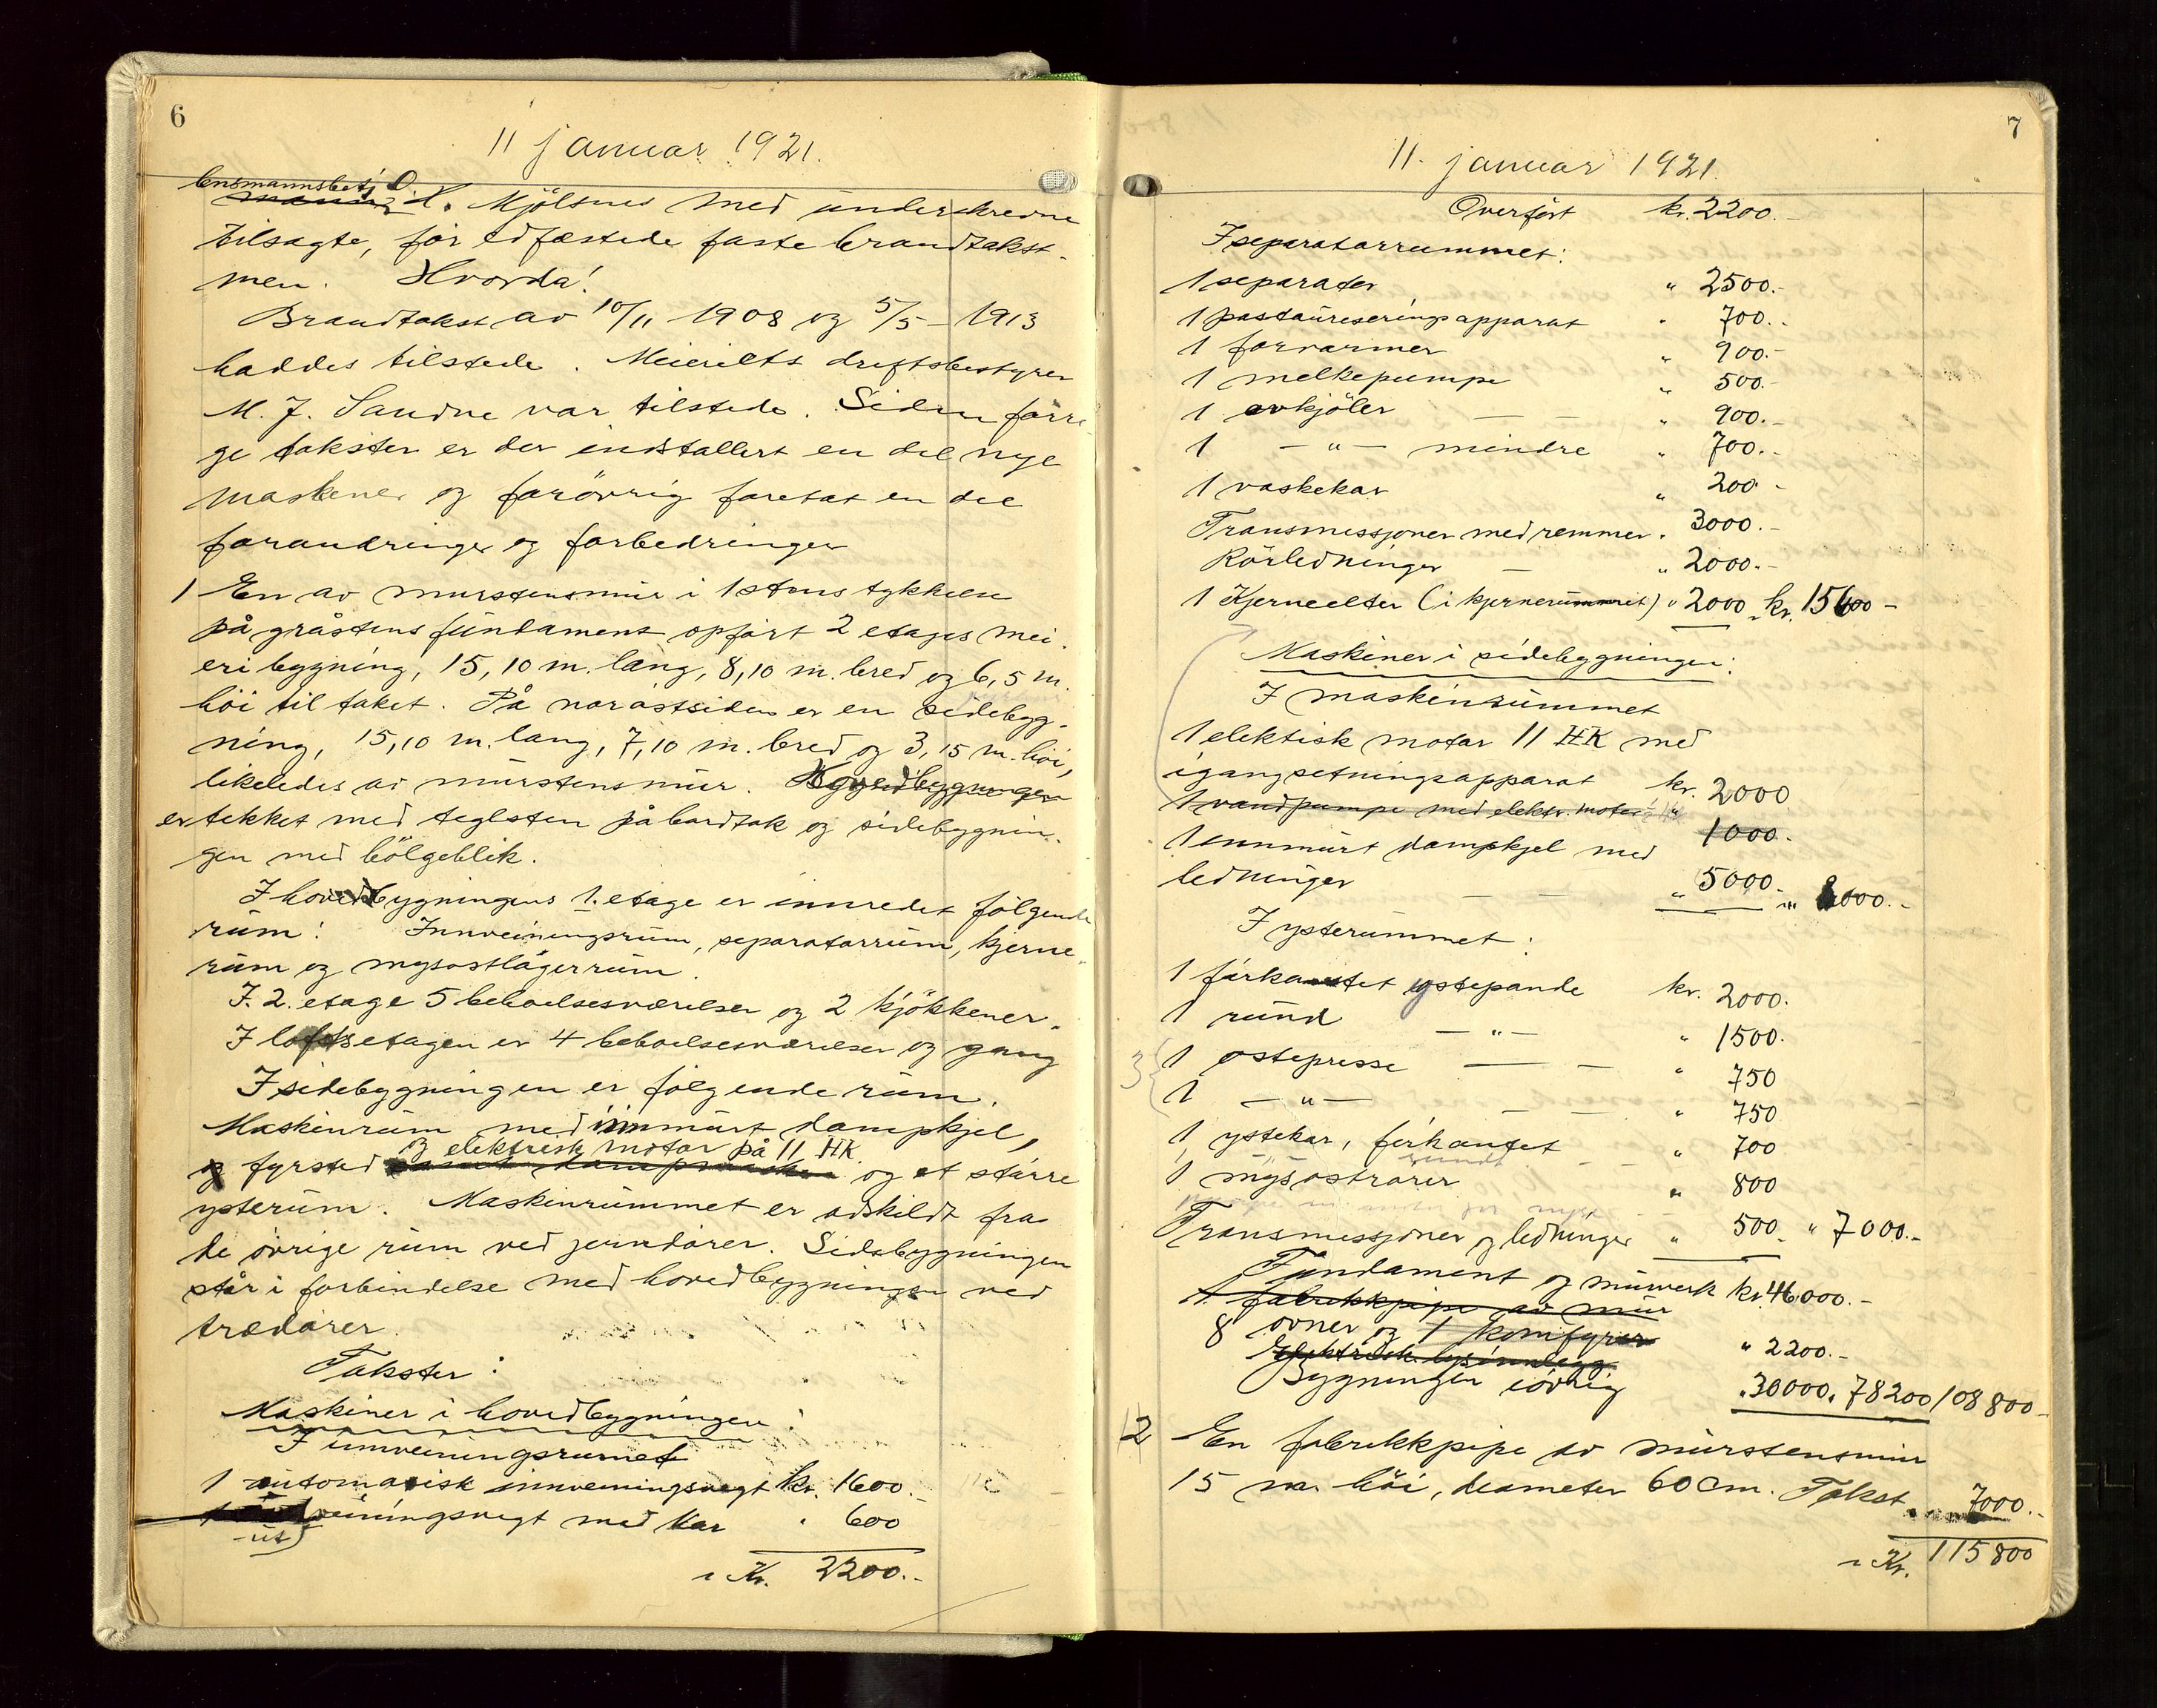 6
11 januar 1921.
lensmannsbetj. O.
H. Mjölsnes med underskrevne
tilsagte, før edfæstede faste brandtakst-
men. Hvorda!
Brandtakst av 10/11 1908 og 5/5 - 1913
haddes tilstede. Meieriets driftsbestyrer
M. J. Sandve var tilstede. Siden forri-
ge takster er der installert en del nye
maskener og forövrig foretat en del
forandringer og forbedringer
1 En av murstensmur i 1 stens tykkelse
på gråstens fundament opført 2 etages mei-
eri bygning, 15,10 m. lang, 8,10 m. bred og 6,5 m.
höi til taket. På norøstsiden er en sidebygg-
ning, 15,10 m. lang, 7,10 m. bred og 3,15 m. höi,
likeledes av murstensmur. Hovedbygningen
er tekket med teglsten på bordtak og sidebygnin-
gen med bölgeblik.
I hovedbygningens 1. etage er innredet følgende
rum: Innveiningsrum, separatorrum, kjerne-
rum og mysostlagerrum.
I. 2. etage 5 beboelsesværelser og 2 kjökkener.
I loftsetagen er 4 beboelsesværelser og gang
I sidebygningen er følgende rum.
Maskinrum med innmurt dampkjel,
og elektrisk motor på 11 HK
og fyrsted samt dampmaskin og et større
ysterum. Maskinrummet er adskildt fra
de øvrige rum ved jerndører. Sidebygningen
står i forbindelse med hovedbygningen ved
trædører.
Takster:
Maskiner i hovedbygningen:
I innveiningsrumet
1 automatisk innveiningsvegt kr. 1600.-
veiningsvegt med kar " 600
ut
Kr. 2200.-
7
11. januar 1921.
Overført kr. 2200.-
I separatorrummet:
1 separator " 2500.-
1 pastauriseringsapparat " 700.-
1 forvarmer " 900.-
1 melkepumpe " 500.-
1 avkjöler — — " 900.-
1 — " — mindre " 700.-
1 vaskekar " 200 -
Transmissjoner med remmer " 3000.-
Rörledninger — " 2000.-
1 Kjerneelter (i kjernerummet) " 2000 kr. 15400 -
Maskiner i sidebygningen:
I maskinrummet
1 elektisk motor 11 HK med
igangsetningsapparat kr. 2000
1 vandpumpe med elektr. motor " 1000.-
1 innmurt dampkjel med
ledninger — — " 5000.- " 8000.-
I ysterummet:
1 firkantet ystepande kr. 2000.
1 rund — " — " 1500.
3 { 1 ostepresse — — " 750
1 — " — — — " 750
1 ystekar, firkantet " 700
rundt
1 mysostrører " 800
Transmissjoner og ledninger " 500.- " 7000.-
Fundament og murverk kr. 46000.-
1 fabrikkpipe av mur
8 ovner og 1 komfyrer " 2200.-
Elektrisk lysinnlegg
Bygningen iövrig " 30000. " 78200 108 800 -
2 En fabrikkpipe av murstensmur
15 m. höi, diameter 60 cm. Takst " 7000.-
Kr. 115 800